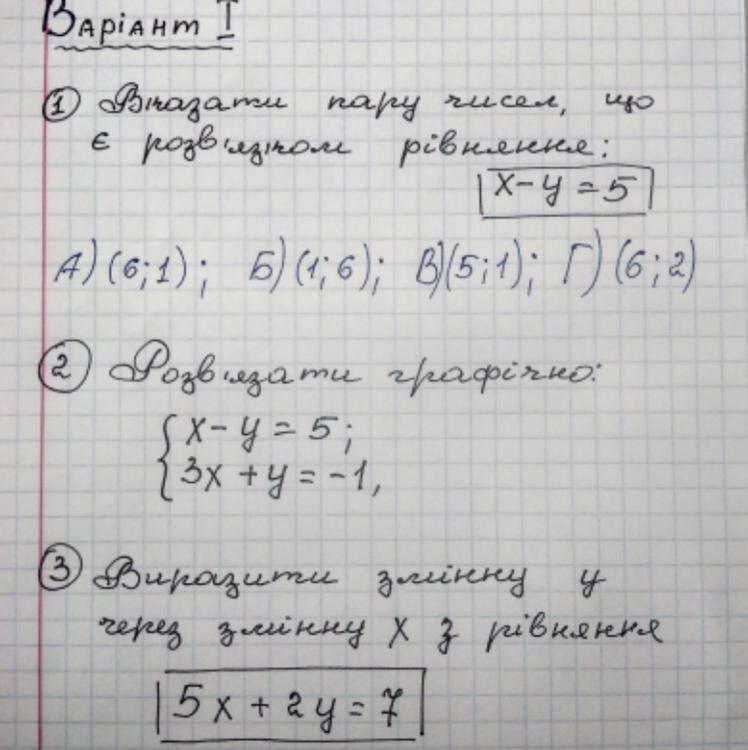 Варіант I
① Вказати пару чисел, що
є розв'язком рівняння:
x - y = 5
А) (6;1); Б) (1;6); В) (5;1); Г) (6;2)
② Розв'язати графічно:
{ x - y = 5;
3x + y = -1,
③ Виразити змінну y
через змінну x з рівняння
5x + 2y = 7